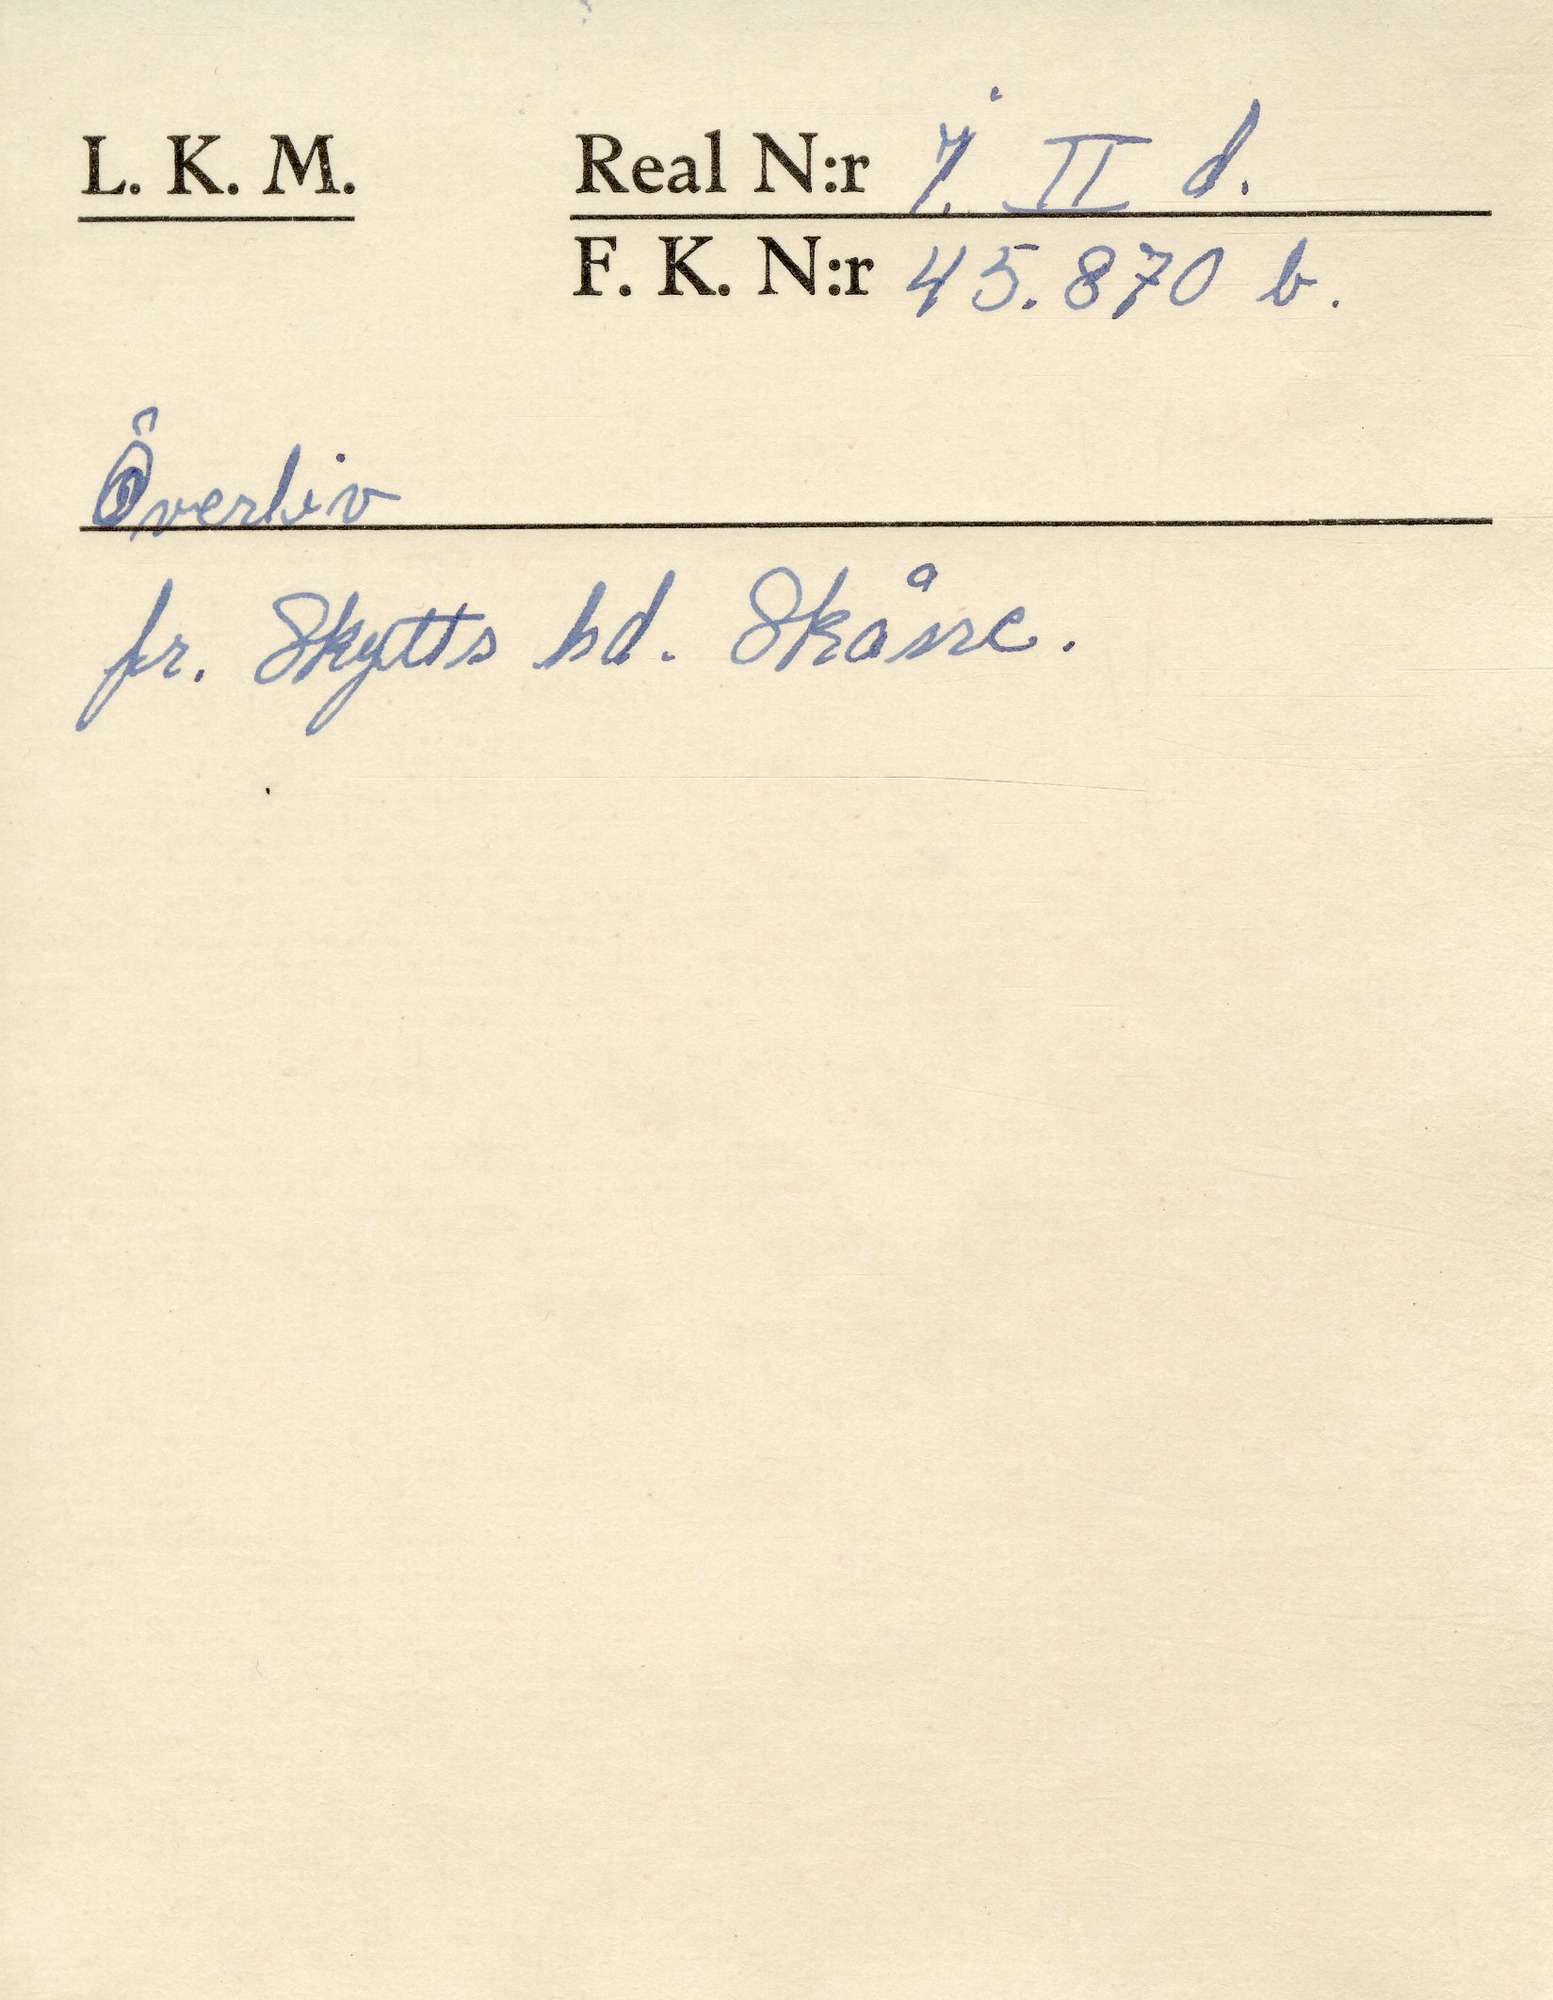 L. K. M. Real N:r 7. II d.
F. K. N:r 45.870 b.
Överliv
fr. Skytts hd. Skåne.